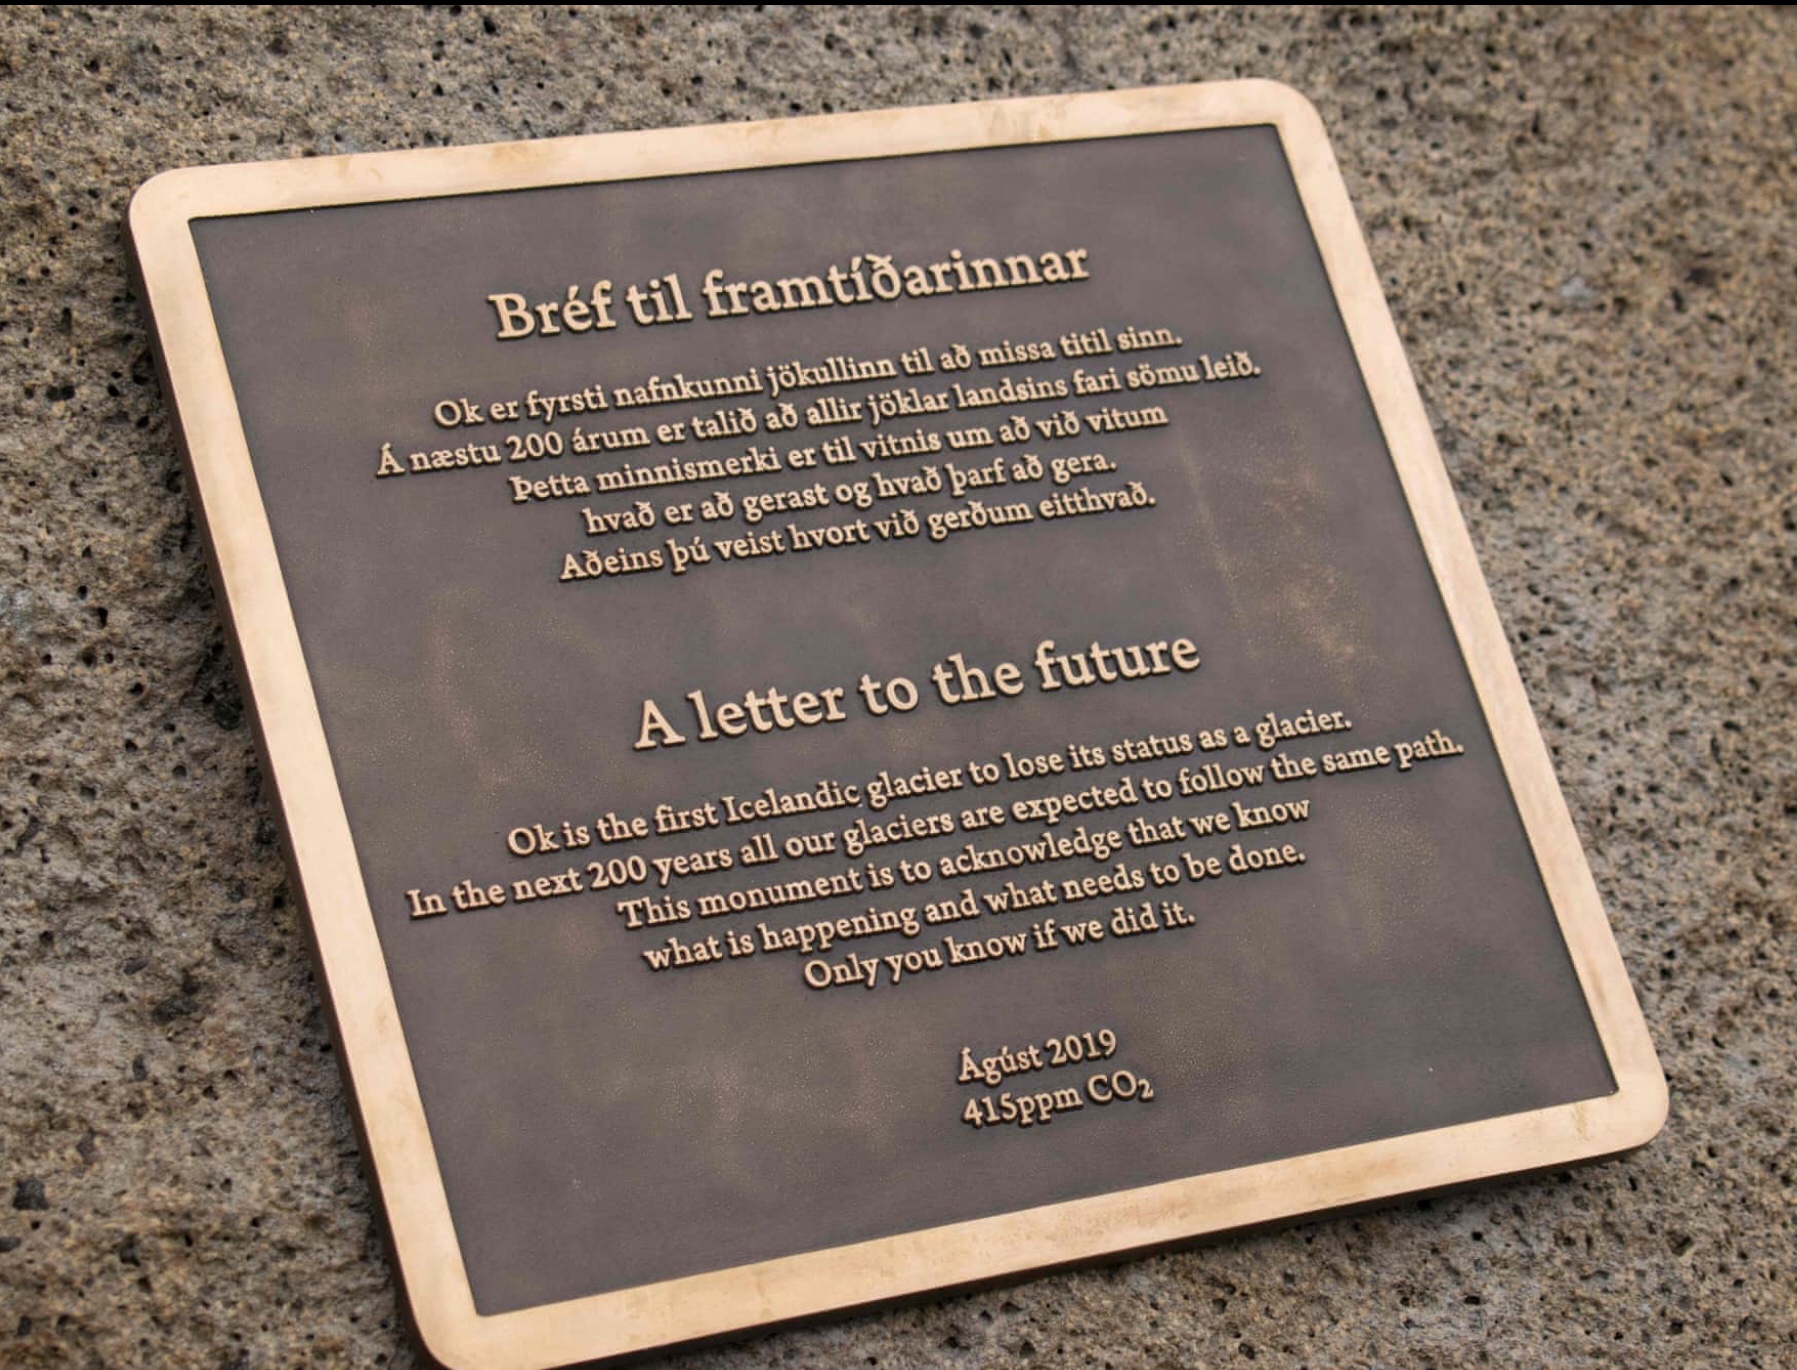 Bréf til framtíðarinnar
Ok er fyrsti nafnkunni jökullinn til að missa titil sinn.
Á næstu 200 árum er talið að allir jöklar landsins fari sömu leið.
Þetta minnismerki er til vitnis um að við vitum
hvað er að gerast og hvað þarf að gera.
Aðeins þú veist hvort við gerðum eitthvað.
A letter to the future
Ok is the first Icelandic glacier to lose its status as a glacier.
In the next 200 years all our glaciers are expected to follow the same path.
This monument is to acknowledge that we know
what is happening and what needs to be done.
Only you know if we did it.
Ágúst 2019
415ppm CO₂